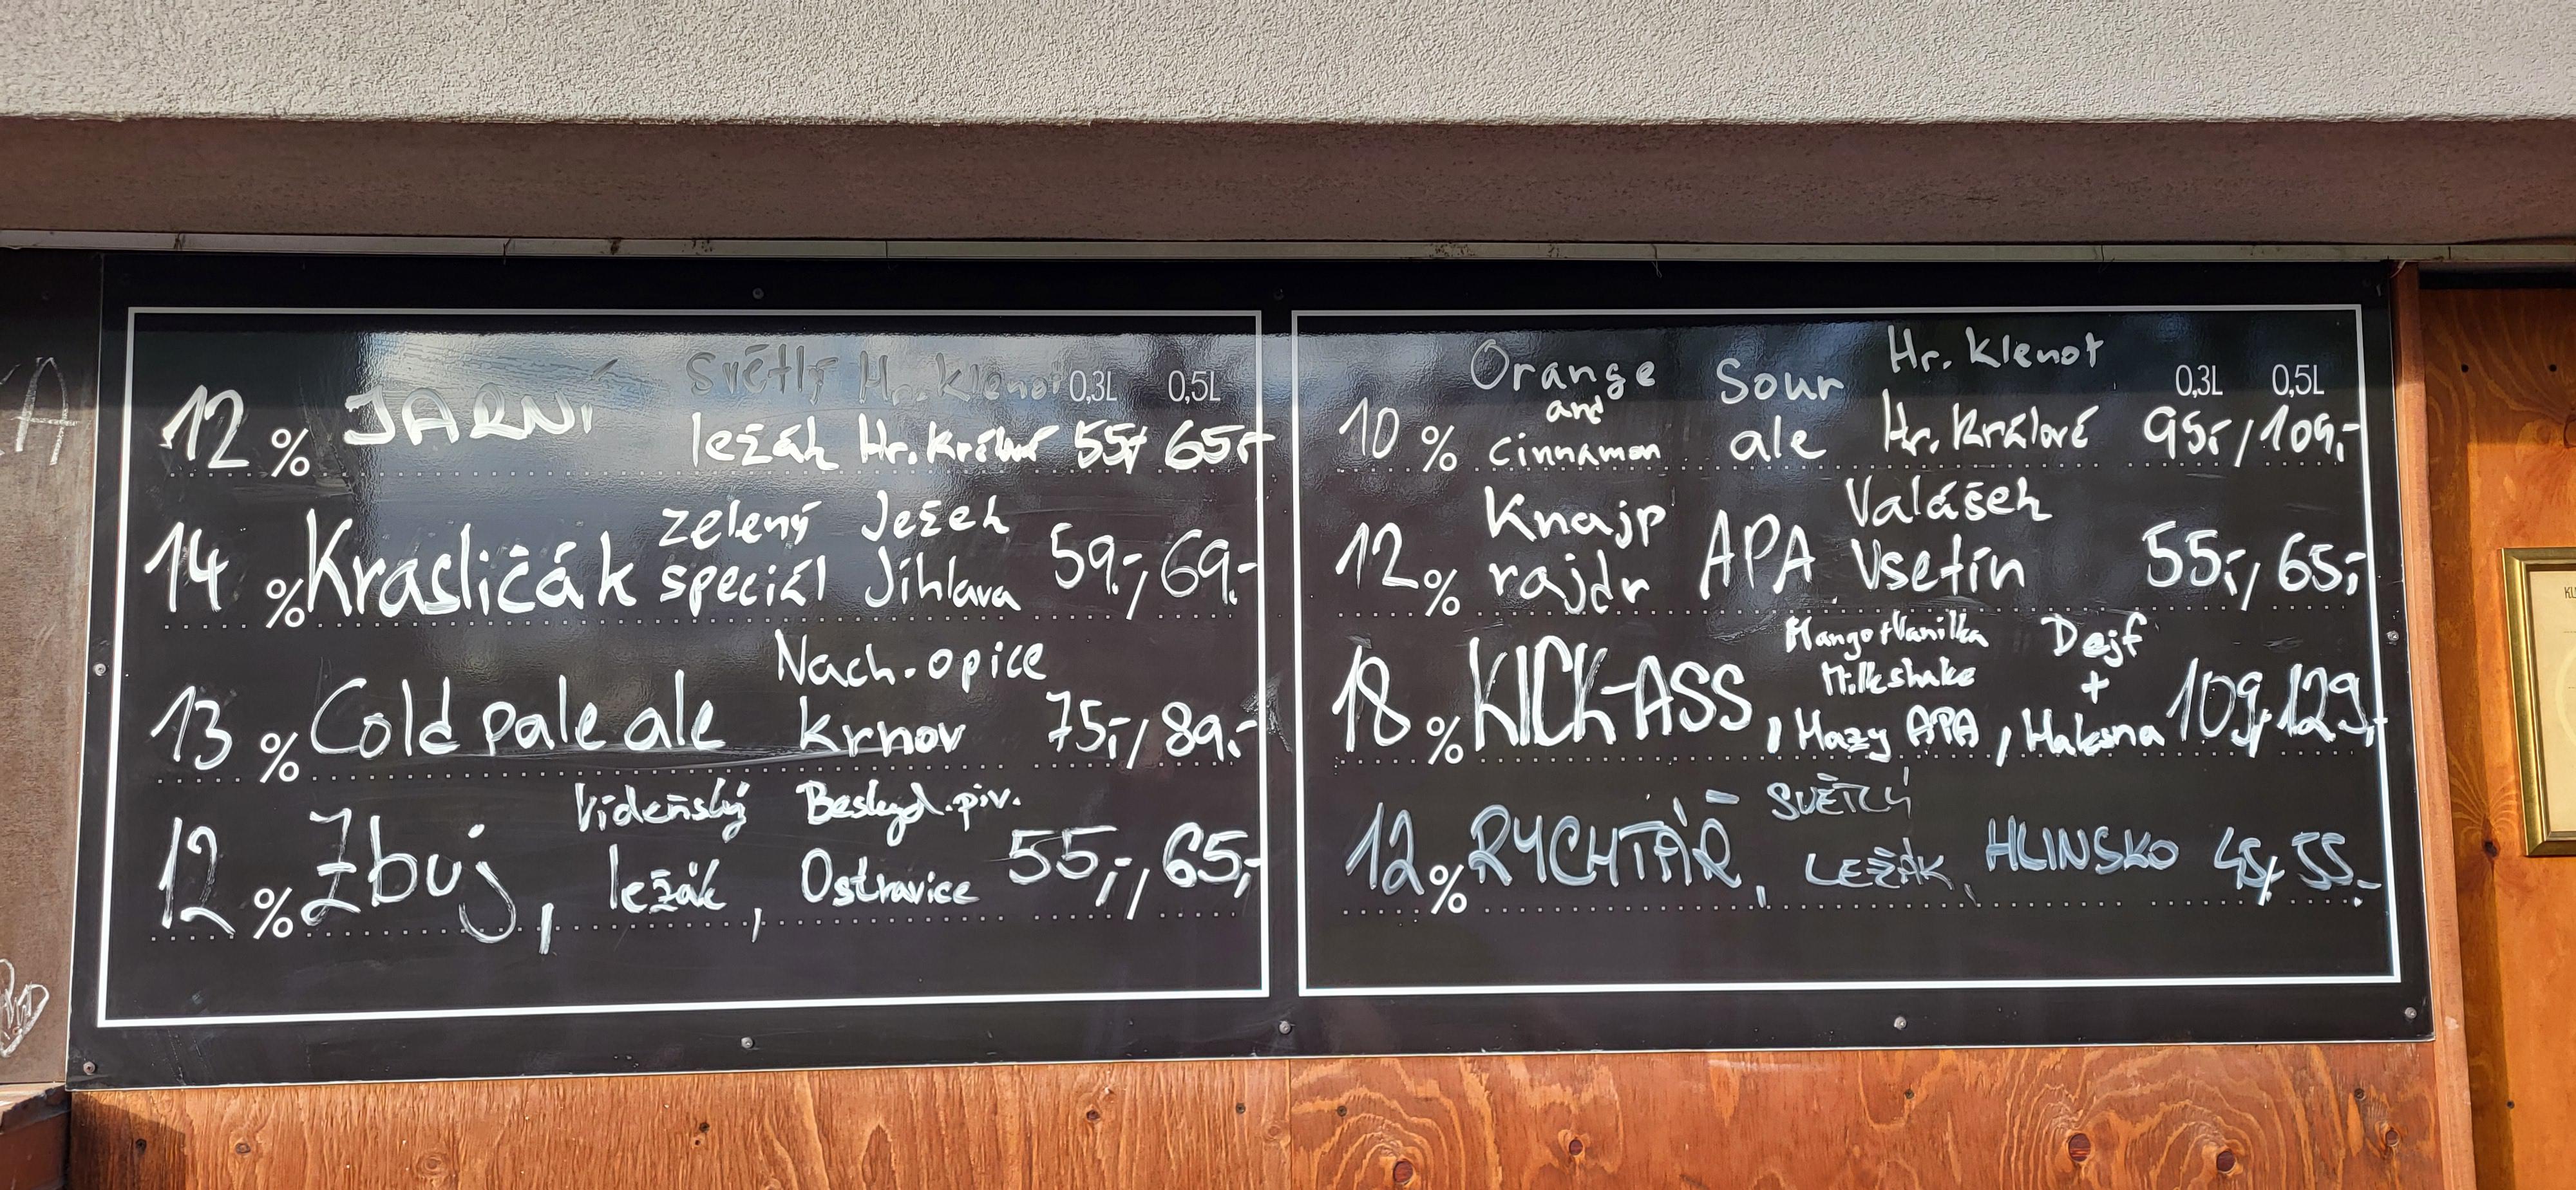 Světlý Hr. Klenot 0,3L 0,5L
12 % JARNÍ ležák Hr. Králové 55,- 65,-
zelený Ježek
14 % Krasličák speciál Jihlava 59.-, 69.-
Nach. opice
13 % Cold pale ale Krnov 75,-, 89,-
Vídeňský Beskyd. piv.
12 % Zbuj, ležák, Ostravice 55,-, 65,-
Orange Sour Hr. Klenot 0,3L 0,5L
and
10 % cinnamon ale Hr. Králové 95,-/109,-
Knajp Valášek
12 % rajdr APA Vsetín 55,-, 65,-
Mango+Vanilka Dejf
Milkshake +
18 % KICK-ASS, Hazy APA, Maksna 109,- 129,-
SVĚTLÝ
12 % RYCHTÁŘ, LEŽÁK, HLINSKO 45, 55.-